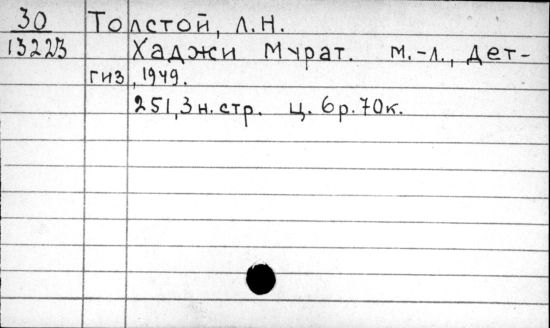 30 Толстой, Л.Н.
13223 Хаджи Мурат. М.-Л., Дет-
гиз, 1949.
251, 3 н. стр. ц. 6 р. 70 к.